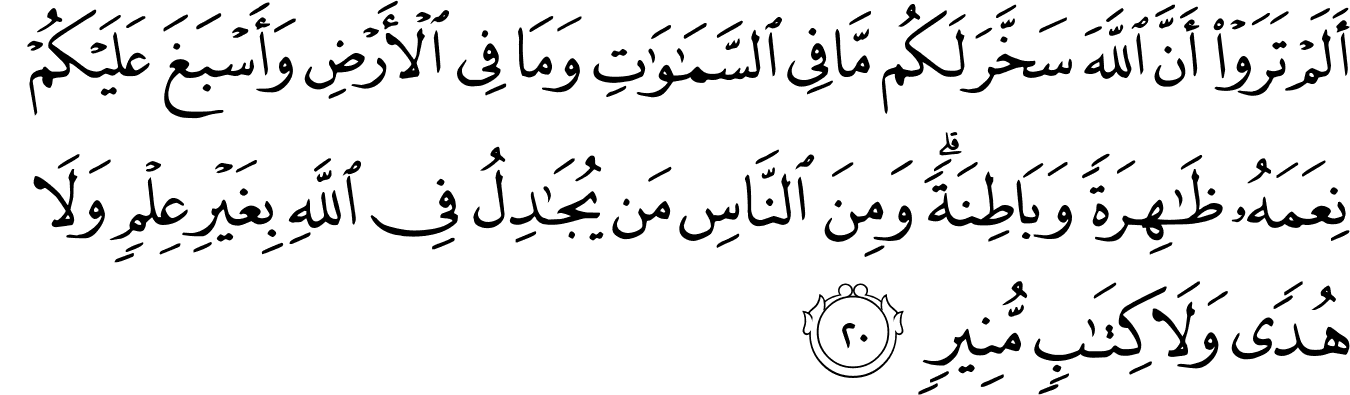 أَلَمْ تَرَوْا۟ أَنَّ ٱللَّهَ سَخَّرَ لَكُم مَّا فِى ٱلسَّمَٰوَٰتِ وَمَا فِى ٱلْأَرْضِ وَأَسْبَغَ عَلَيْكُمْ
نِعَمَهُۥ ظَٰهِرَةً وَبَاطِنَةً ۗ وَمِنَ ٱلنَّاسِ مَن يُجَٰدِلُ فِى ٱللَّهِ بِغَيْرِ عِلْمٍ وَلَا
هُدًى وَلَا كِتَٰبٍ مُّنِيرٍ ٢٠